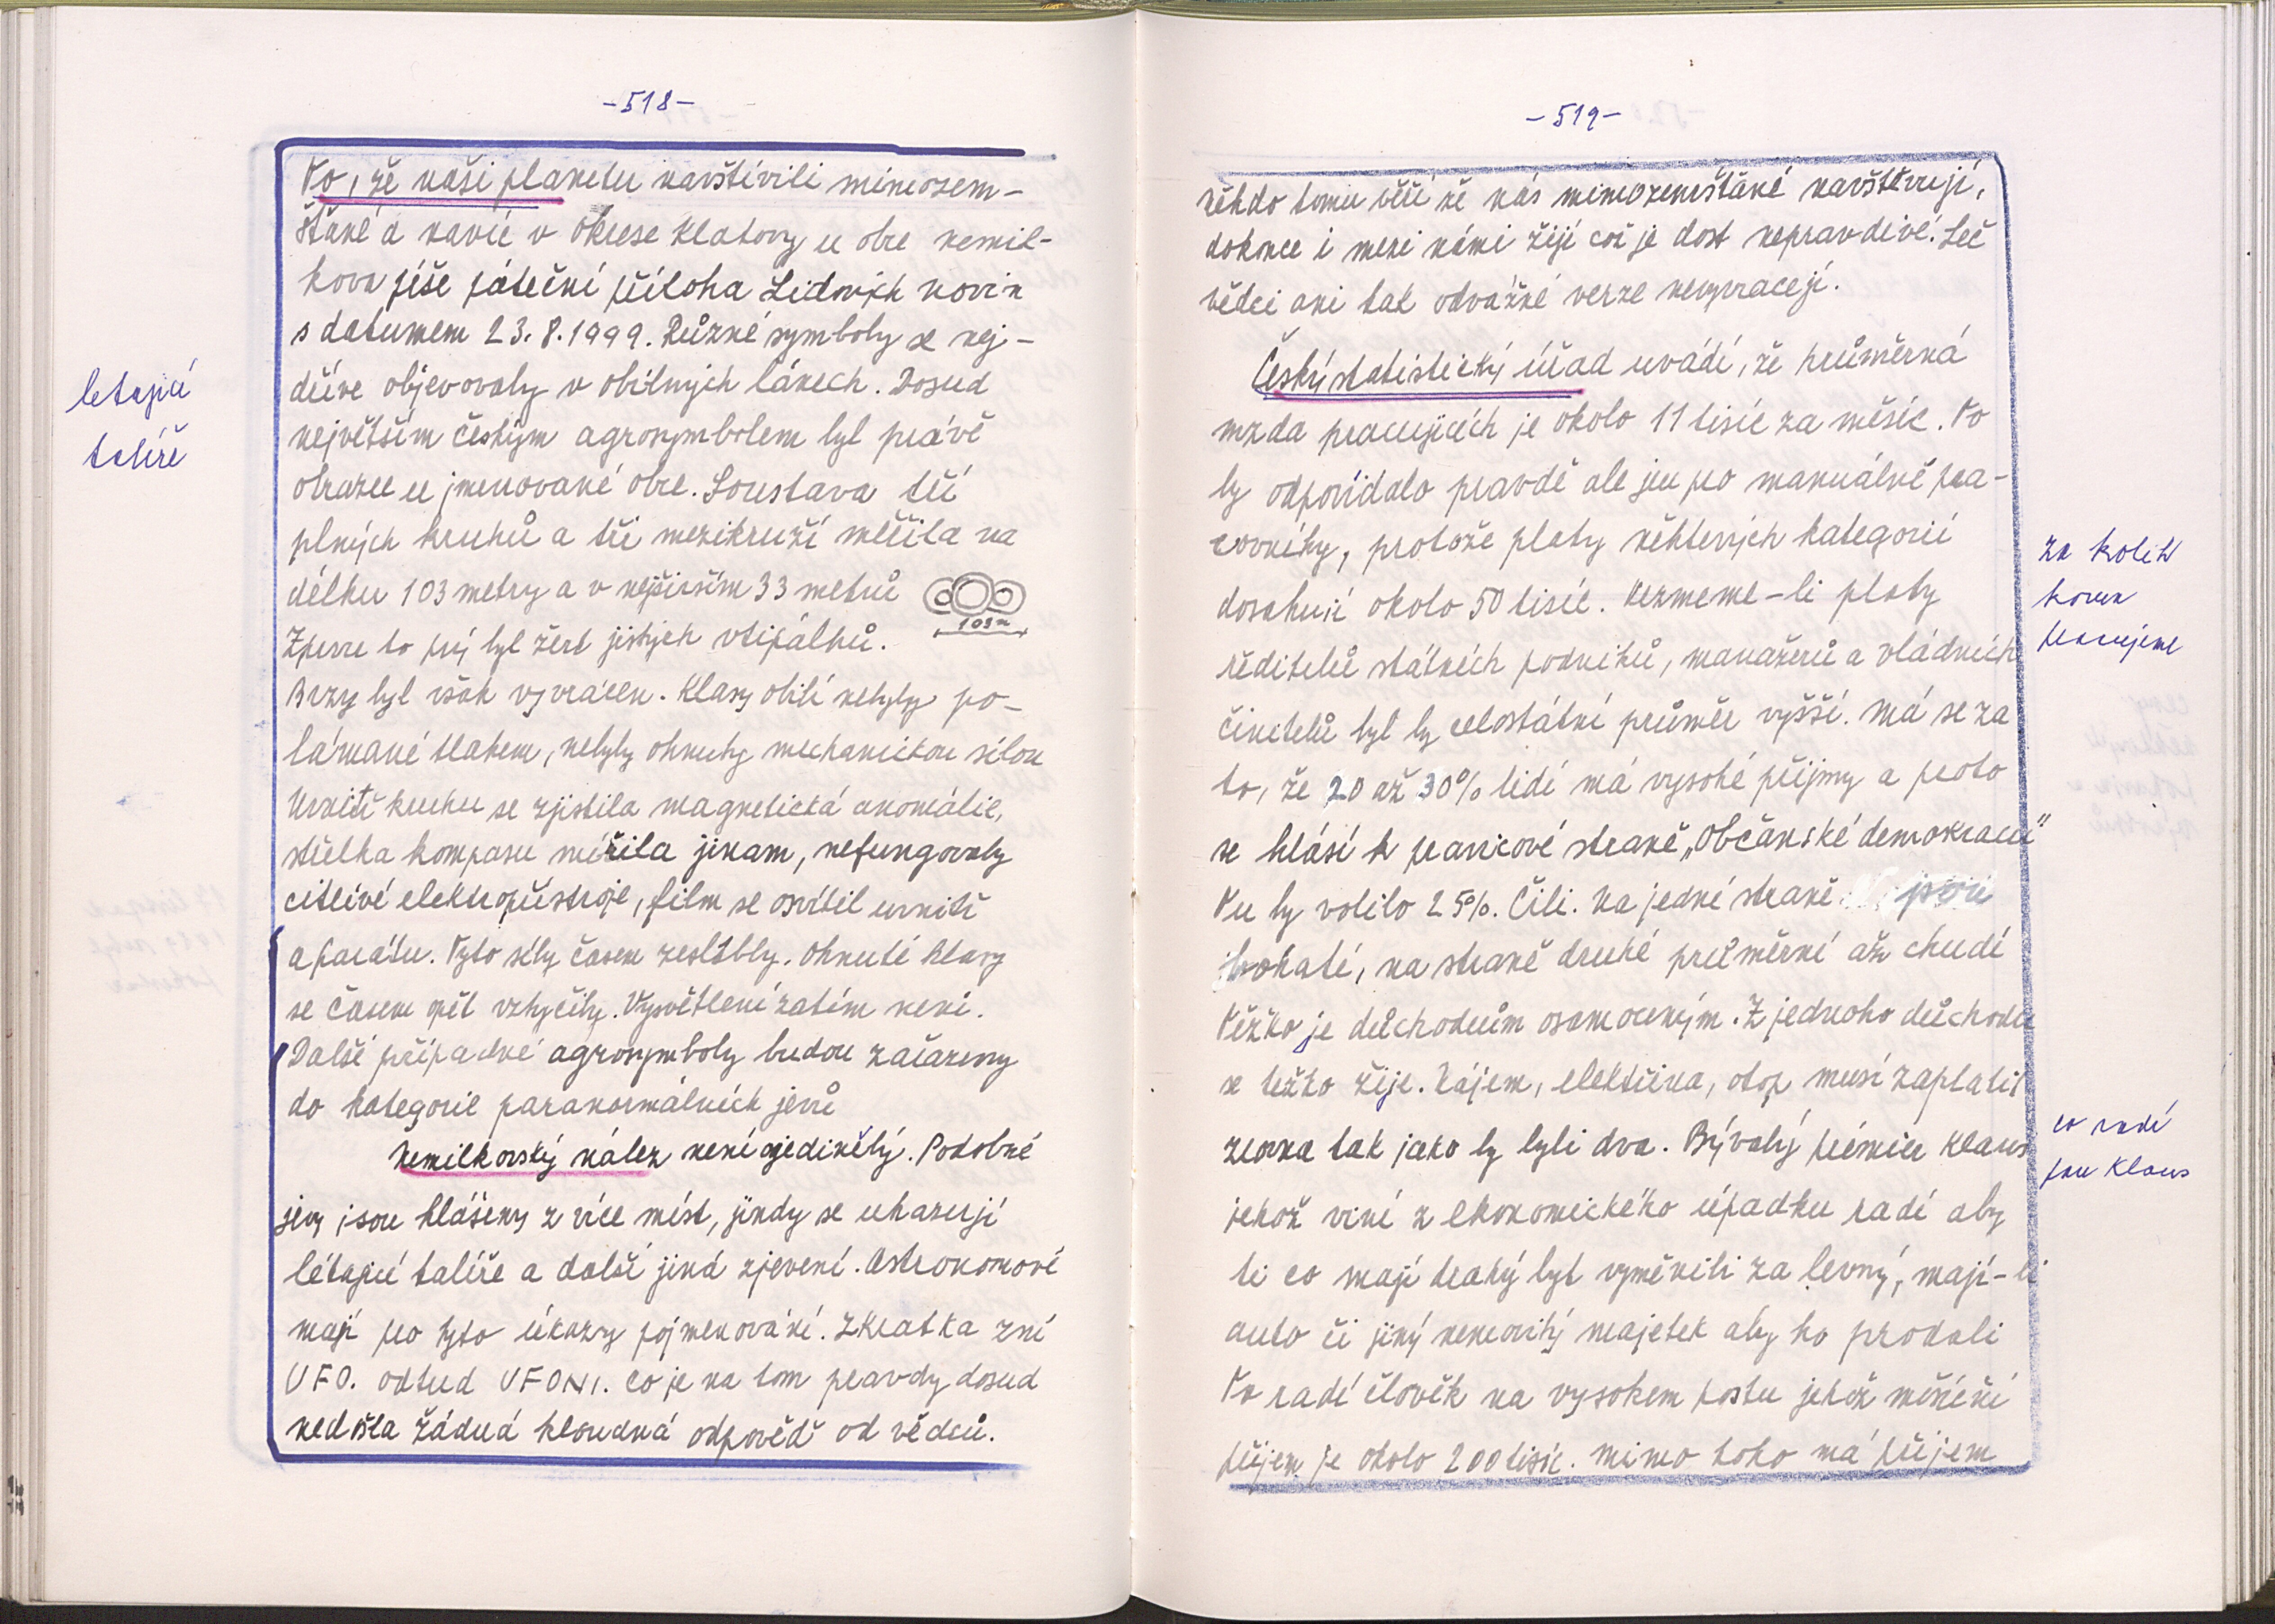 -518-
To, že naši planetu navštívili mimozem-
šťané a navíc v okrese Klatovy u obce Nemil-
kova píše páteční příloha Lidových novin
s datumem 23.8.1999. Různé symboly se nej-
dříve objevovaly v obilných lánech. Dosud
největším českým agrosymbolem byl právě
obrazec u jmenované obce. Soustava tří
plných kruhů a tři mezikruží měřila na
délku 103 metry a v nejširším 33 metrů
103m
Zprvu to prý byl žert jistých vtipálků.
Brzy byl však vyvrácen. Klasy obilí nebyly po-
lámané tlakem, nebyly ohnuty mechanickou silou
Uvnitř kruhu se zjistila magnetická anomálie,
střelka kompasu mířila jinam, nefungovaly
citlivé elektropřístroje, film se osvítil uvnitř
aparátu. Tyto síly časem zeslábly. Ohnuté klasy
se časem opět vztyčily. Vysvětlení zatím není.
Další případné agrosymboly budou zařazeny
do kategorie paranormálních jevů
Nemilkovský nález není ojedinělý. Podobné
jevy jsou hlášeny z více míst, jindy se ukazují
létající talíře a další jiná zjevení. Astronomové
mají pro tyto úkazy pojmenování. Zkratka zní
UFO. odtud UFONI. Co je na tom pravdy dosud
nedošla žádná kloudná odpověď od vědců.
letající
talíře
-519-
někdo tomu věří že nás mimozemšťané navštěvují,
dokonce i mezi námi žijí což je dost nepravdivé. Leč
vědci ani tak odvážné verze nevyvracejí.
Český statistický úřad uvádí, že průměrná
mzda pracujících je okolo 11 tisíc za měsíc. To
by odpovídalo pravdě ale jen pro manuálně pra-
covníky, protože platy některých kategorií
dosahují okolo 50 tisíc. Vezmeme-li platy
ředitelů státních podniků, manažerů a vládních
činitelů byl by celostátní průměr vyšší. Má se za
to, že 20 až 30% lidí má vysoké příjmy a proto
se hlásí k pravicové straně „Občanské demokracii"
Tu by volilo 25%. Čili. Na jedné straně jsou
bohatí, na straně druhé průměrní až chudí
Těžko je důchodcům osamoceným. Z jednoho důchodu
se težko žije. Nájem, elektřina, otop musí zaplatit
zrovna tak jako by byli dva. Bývalý premiér Klaus
jehož viní z ekonomického úpadku radí aby
ti co mají drahý byt vyměnili za levný, mají-li
auto či jiný nemovitý majetek aby ho prodali
To radí člověk na vysokem postu jehož měsíční
příjem je okolo 200 tisíc. mimo toho má příjem
za kolik
korun
pracujeme
co radí
pan Klaus